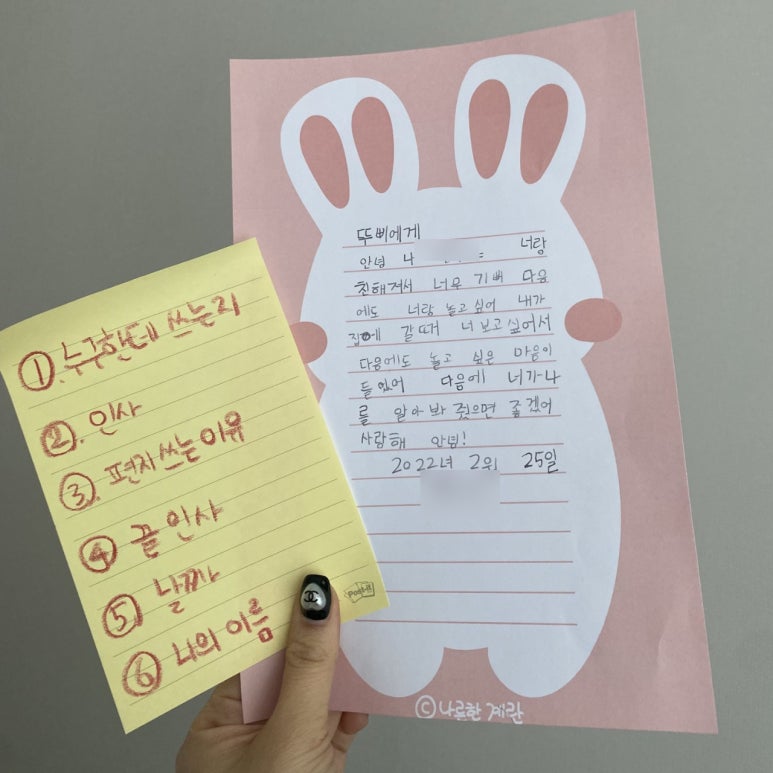 ①. 누구한테 쓰는지
②. 인사
③. 편지 쓰는 이유
④ 끝 인사
⑤ 날짜
⑥ 나의 이름
Post-it
뚜삐에게
안녕 나 너랑
친해져서 너무 기뻐 다음
에도 너랑 놀고 싶어 내가
집에 갈때 너 보고 싶어서
다음에도 놀고 싶은 마음이
들었어 다음에 너가 나
를 알아봐 줬으면 좋겠어
사랑해 안녕!
2022년 2월 25일
ⓒ나른한 계란